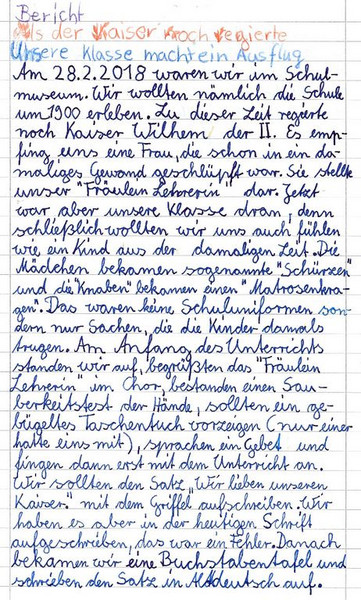 Bericht
Als der Kaiser noch regierte
Unsere Klasse macht ein Ausflug
Am 28.2.2018 waren wir im Schul-
museum. Wir wollten nämlich die Schule
um 1900 erleben. Zu dieser Zeit regierte
noch Kaiser Wilhem der II. Es emp-
fing uns eine Frau, die schon in ein da-
maliges Gewand geschlüpft war. Sie stellte
unser "Fräulein Lehrerin" dar. Jetzt
war aber unsere Klasse dran, denn
schließlich wollten wir uns auch fühlen
wie ein Kind aus der damaligen Zeit. Die
Mädchen bekamen sogenannte "Schürzen"
und die "Knaben" bekamen einen "Matrosenkra-
gen". Das waren keine Schuluniformen son-
dern nur Sachen, die die Kinder damals
trugen. Am Anfang des Unterrichts
standen wir auf, begrüßten das "Fräulein
Lehrerin" im Chor, bestanden einen Sau-
berkeitstest der Hände, sollten ein ge-
bügeltes Taschentuch vorzeigen (nur einer
hatte eins mit), sprachen ein Gebet und
fingen dann erst mit dem Unterricht an.
Wir sollten den Satz "Wir lieben unseren
Kaiser." mit dem Griffel aufschreiben. Wir
haben es aber in der heutigen Schrift
aufgeschrieben, das war ein Fehler. Danach
bekamen wir eine Buchstabentafel und
schrieben den Satz in Altdeutsch auf.